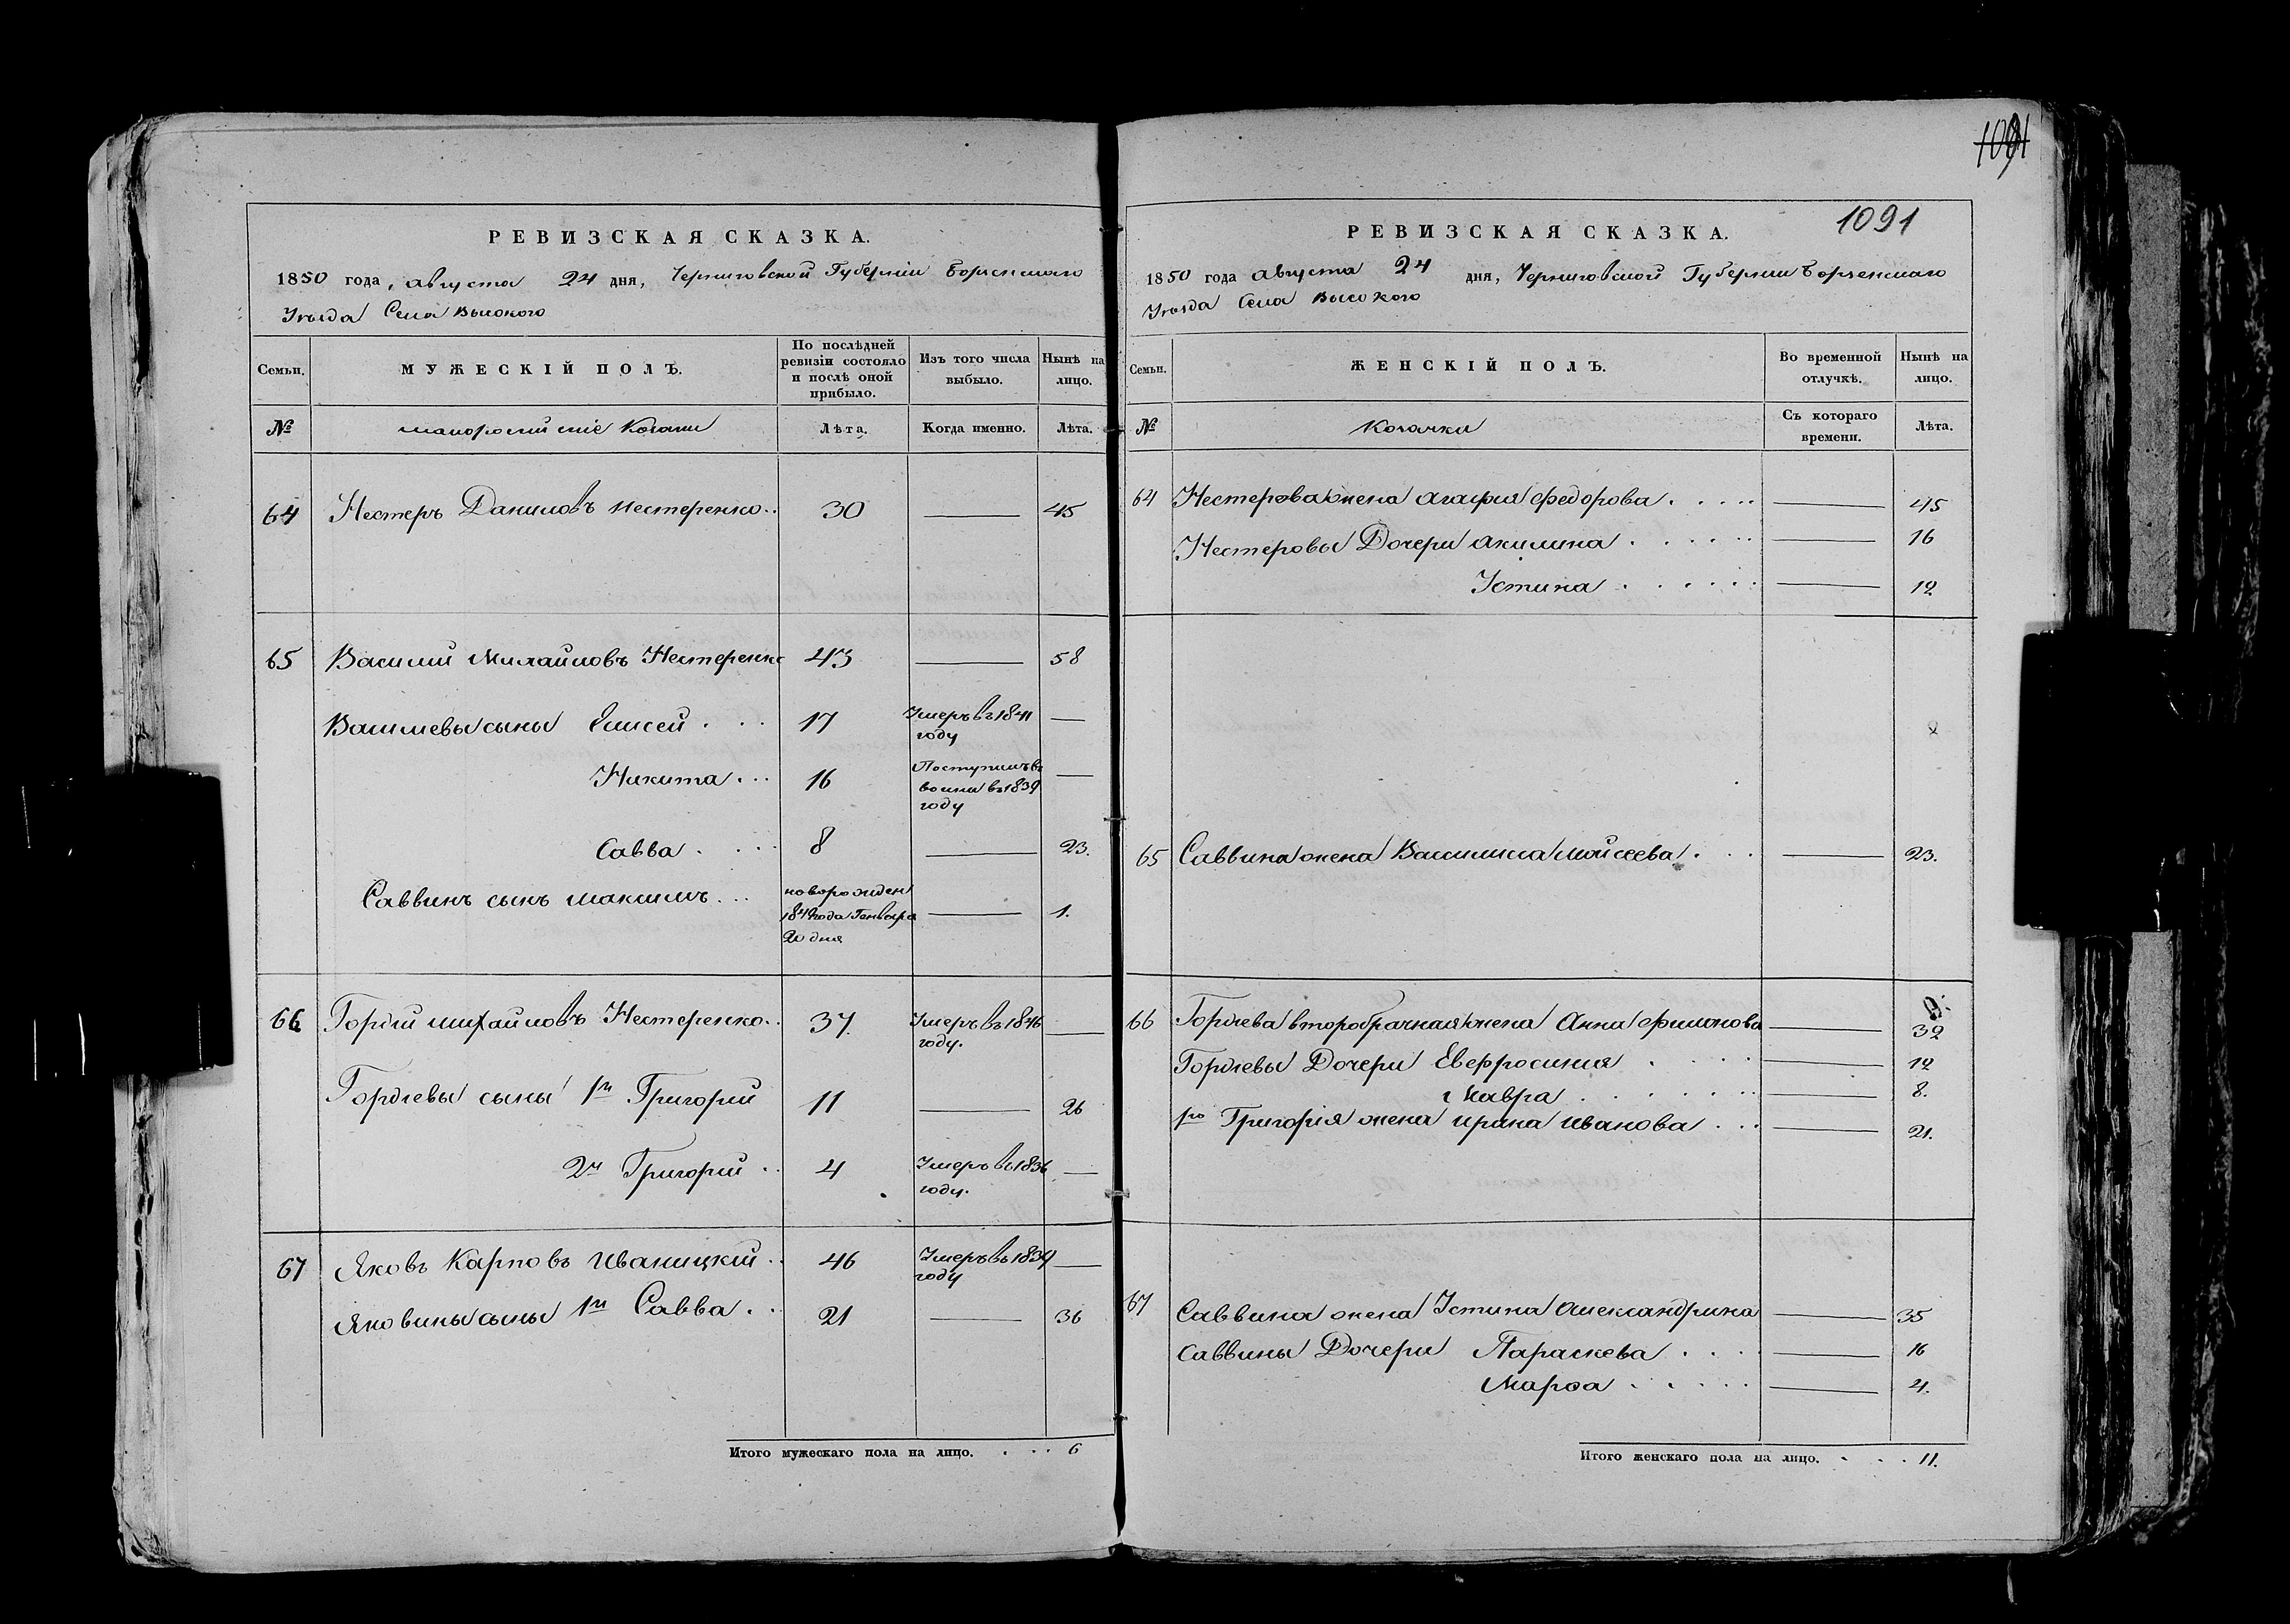 1091
РЕВИЗСКАЯ СКАЗКА.
1850 года, августа 24 дня, Черниговской Губерніи Борзенскаго
Уѣзда Села Высокого
Семьи.
МУЖЕСКІЙ ПОЛЪ.
По послѣдней
ревизіи состояло
и послѣ оной
прибыло.
Изъ того числа
выбыло.
Нынѣ на
лицо.
№
малороссийские Козаки
Лѣта.
Когда именно.
Лѣта.
64 Нестеръ Даниловъ Нестеренко.. 30 — 45
65 Василий Михайловъ Нестеренко 43 — 58
Василиевы сыны Елисей . . . 17 Умеръ въ 1841 —
году
Никита ... 16 Поступилъ въ —
воины въ 1839
году
Савва . . . . 8 — 23.
Саввинъ сынъ Максимъ ... новорожден
1849 года Генваря — 1.
20 дня
66 Гордій Михайловъ Нестеренко.. 37. Умеръ въ 1846 —
году.
Гордіевы сыны 1й Григорий 11 — 26
2й Григорий .. 4 Умеръ въ 1836 —
году.
67 Яковъ Карповъ Иваницкий .. 46 Умеръ въ 1839 —
году
Яковины сыны 1й Савва . . . 21 — 36
Итого мужескаго пола на лицо. . . . 6
1091
РЕВИЗСКАЯ СКАЗКА.
1850 года августа 24 дня, Черниговской Губернии Борзенскаго
Уѣзда Села Высокого
Семьи.
ЖЕНСКІЙ ПОЛЪ.
Во временной
отлучкѣ.
Нынѣ на
лицо.
№
Козачки
Съ котораго
времени.
Лѣта.
64 Нестерова жена Агафия Федорова . . . . . — 45
Нестеровы Дочери Акилина . . . . . . — 16
Устина . . . . . . — 12
65 Саввина жена Василиса Мойсеева . . . — 23.
66 Гордіева второбрачная жена Анна Филонова — 32
Гордіевы Дочери Евфросиния . . . . — 12
Мавра . . . . . . . — 8.
1го Григорія жена Ирина Иванова . . . — 21.
67 Саввина жена Устина Александрина — 35
Саввины Дочери Параскева . . . . — 16
Марѳа . . . . . — 4.
Итого женскаго пола на лицо. . . . 11.